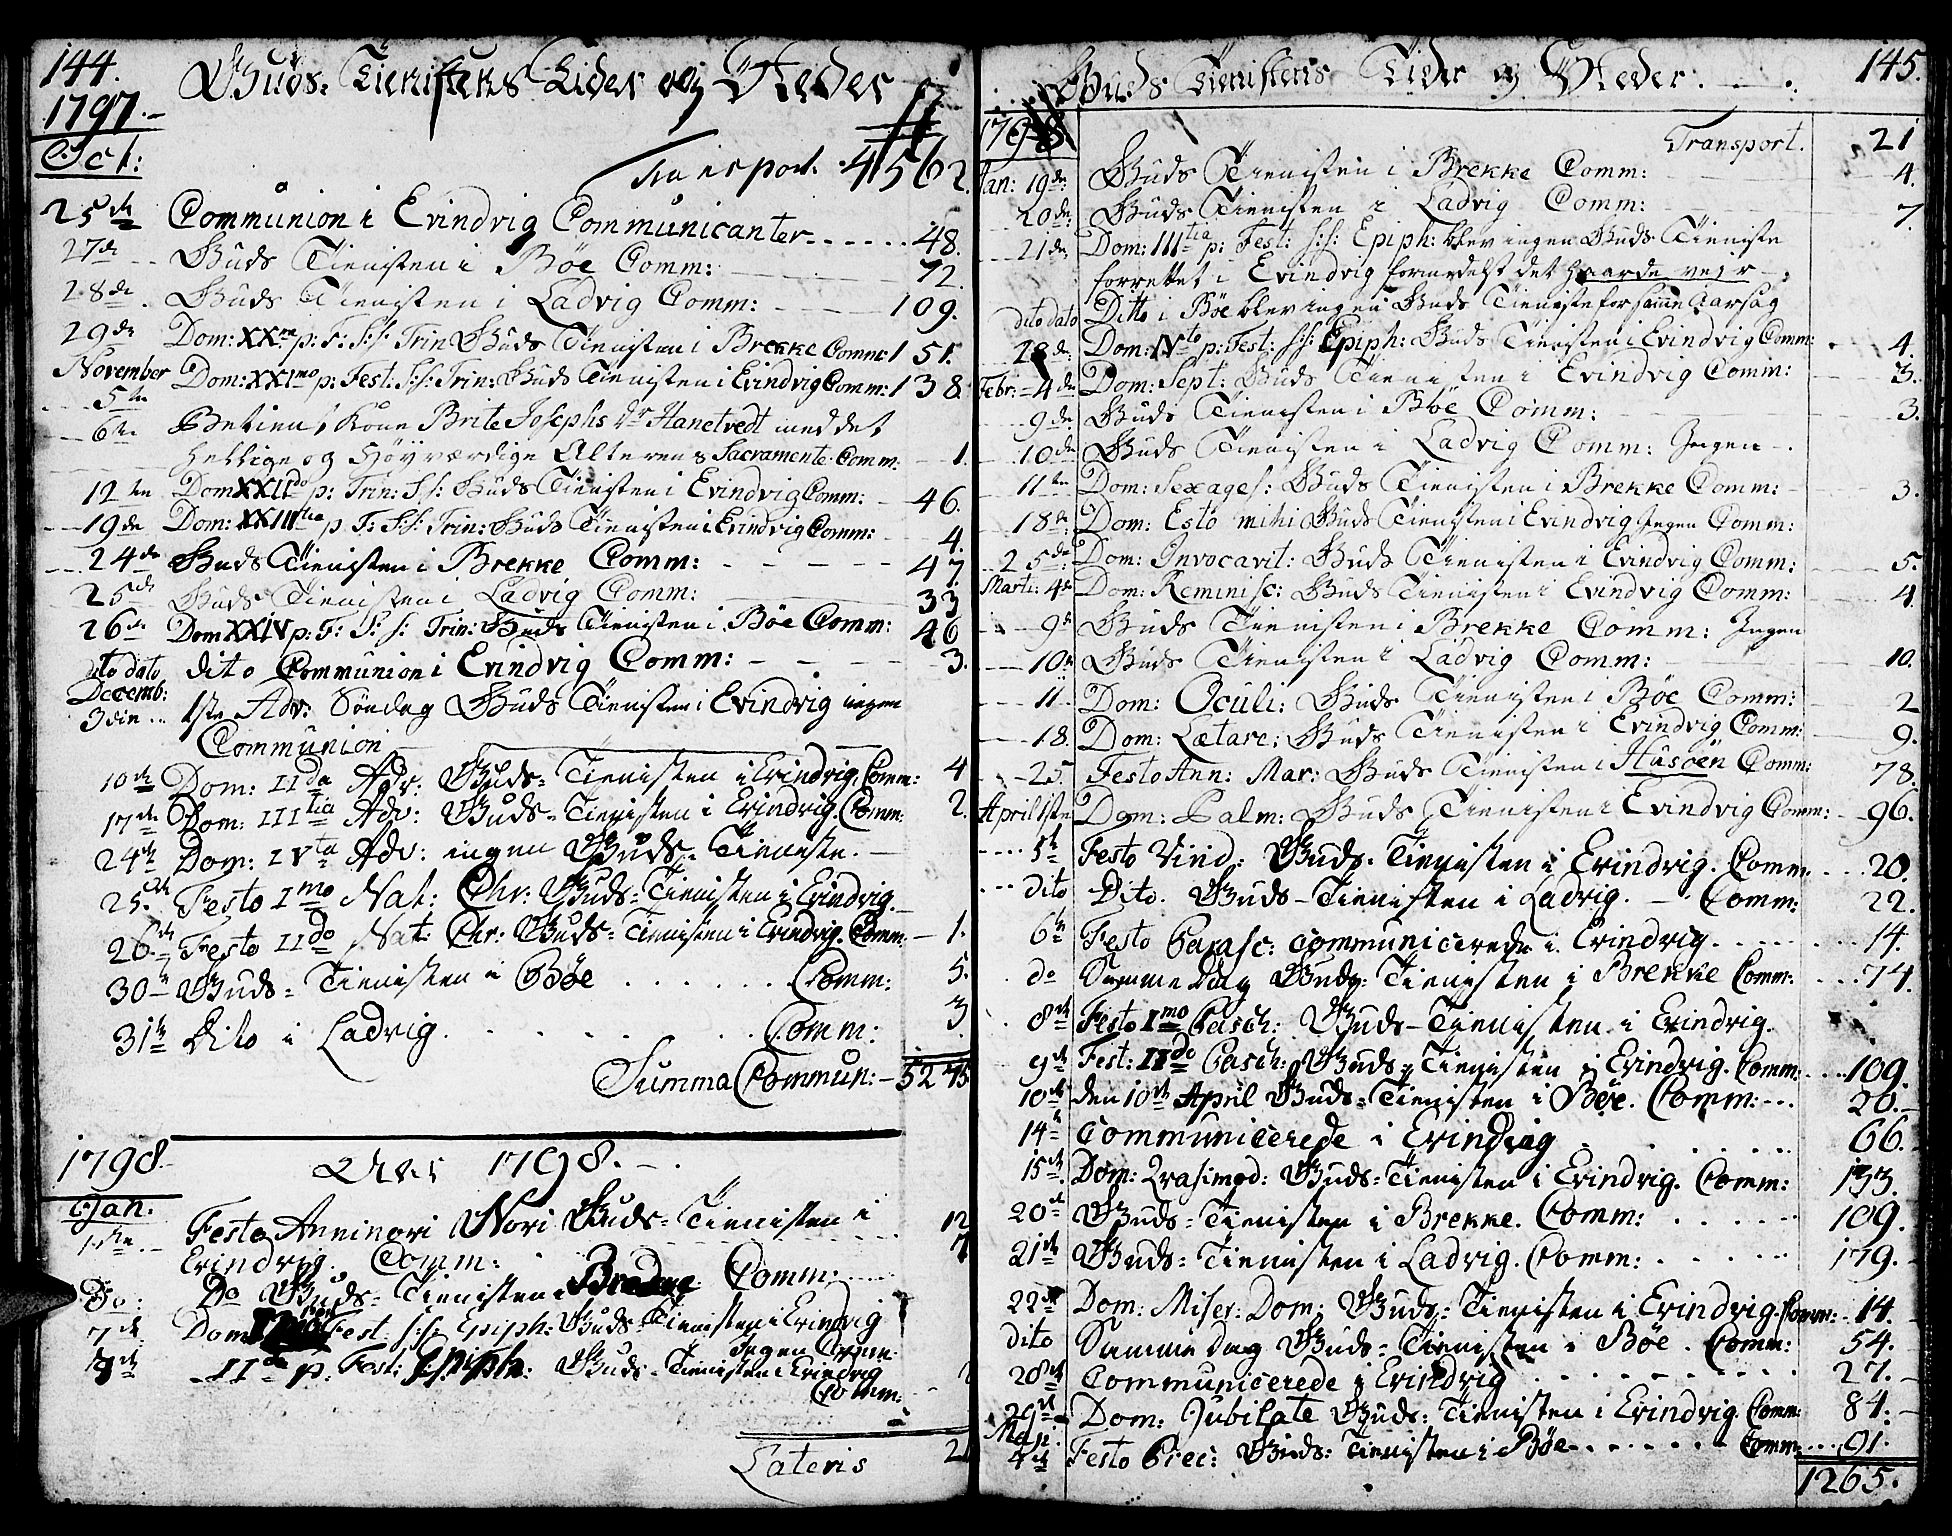 144.
Guds: Tienistens Tider og Steder
1797.-
Oct:
Transport. 4562.
25de Communion i Evindvig Communicanter...... 48.
27de .. Guds Tienisten i Böe Comm: 72.
28de . Guds Tienisten i Ladvig Comm: 109.
29de Dom: XXma p: F: S:S: Trin Guds Tienisten i Brekke Comm: 151.
November Dom: XXImo p: Fest: S:S: Trin: Guds Tienisten i Evindvig Comm: 138.
5te
6te Betient Kone Brite Josephs dr Hanetvedt med det
hellige og Höyværdige Alterens Sacramente Comm: 1.
12ten Dom XXIIdo p: Trin: S:S: Guds Tienisten i Evindvig Comm: 46.
19de Dom: XXIIItia p F: S:S: Trin: Guds Tienisten i Evindvig Comm: 4.
24de Guds Tienisten i Brekke Comm: 47.
25de Guds Tienisten i Ladvig Comm: 33
26de Dom XXIV p: F: S: S: Trin: Guds Tienisten i Böe Comm: 46
dito dato dito Communion i Evindvig Comm: 3.
Decemb:
3die .. 1ste Adv: Söndag Guds Tienisten i Evindvig ingen
Communion
10de Dom: IIda Adv: Guds= Tienisten i Evindvig. Comm: 4
17de Dom: IIItia Adv: Guds= Tienisten i Evindvig. Comm: 2.
24de Dom: IVta Adv: ingen Guds= Tieniste.
25de Festo Imo Nat: Chr: Guds= Tienisten i Evindvig.
26de Festo IIdo Nat: Chr: Guds= Tienisten i Evindvig. Comm: 1.
30 Guds= Tienisten i Böe ....... Comm: 5.
31te Dito i Ladvig. ...... Comm: 3
Summa Commun:- 5275
1798.- Aar 1798.-.
Jan.
1ste Festo Anni novi Guds= Tienisten i 12
Evindvig. Comm: 7
Do: Do Guds= Tienisten i Comm:
7de Dom Fest: S:S: Epiph: Guds= Tienisten i Evindvig
Ingen Comm:
IIda p. Fest: Epiph: Guds= Tienisten i Evindvig
Comm:
Lateris 21
145.
Guds Tienistens Tider og Steder.
1798
Transport. 21
Jan: 19de: Guds Tienisten i Brekke Comm: 4.
20de: Guds Tienisten i Ladvig Comm: 7.
21de Dom: IIItia p: Fest: S:S: Epiph: blev ingen Guds Tieniste
forrettet i Evindvig formedelst det haarde vejr
dito dato Ditto i Böe blev ingen Guds Tieniste for samme Aarsag
28de: Dom: IVto p: Fest: S:S: Epiph: Guds Tienisten i Evindvig Comm: 4.
Febr: 4de Dom: Sept: Guds Tienisten i Evindvig Comm: 3.
9de Guds Tienisten i Böe Comm: 3.
10de Guds Tienisten i Ladvig Comm: Ingen .
11te Dom: Sexages: Guds Tienisten i Brekke Comm: 3.
18de Dom: Esto mihi Guds Tienisten i Evindvig Ingen Comm:
25de Dom: Invocavit: Guds Tienisten i Evindvig Comm: 5.
Marti: 4de Dom: Reminisc: Guds Tienisten i Evindvig Comm: 4
9de Guds Tienisten i Brekke Comm: Ingen
10de Guds Tienisten i Ladvig Comm: 10.
11 Dom: Oculi: Guds Tienisten i Böe Comm: 2
18. Dom: Lætare: Guds Tienisten i Evindvig Comm: 9.
25. Festo Ann: Mar: Guds Tienisten i Husöen Comm: 78.
April 1ste Dom: Palm: Guds Tienisten i Evindvig Comm: 96.
5te Festo Virid: Guds= Tienisten i Evindvig. Comm. 20.
dito Dito. Guds=Tienisten i Ladvig. Comm: 22.
6te Festo Parasc: communicerede i Evindvig 14.
do Samme Dag Guds=Tienisten i Brekke Comm: 74.
8de Festo Imo Pasch: Guds=Tienisten i Evindvig.
9de Fest: IIdo Pasch: Guds=Tienisten i Evindvig. Comm: 109.
10de den 10de April Guds=Tienisten i Böe. Comm: 20.
14de Communicerede i Evindvig 66.
15de Dom: Qvasimod: Guds=Tienisten i Evindvig. Comm: 133.
20de Guds=Tienisten i Brekke. Comm: 109.
21de Guds=Tienisten i Ladvig. Comm: 179.
22de Dom: Miser: Dom: Guds= Tienisten i Evindvig. Comm: 14.
dito Samme Dag Guds= Tienisten i Böe. Comm: 54.
28de Communicerede i Evindvig 27.
29de Dom: Jubilate Guds: Tienisten i Evindvig Comm: 84.
May.
4de Festo Prec: Guds: Tienisten i Böe Comm: 91.
1265.